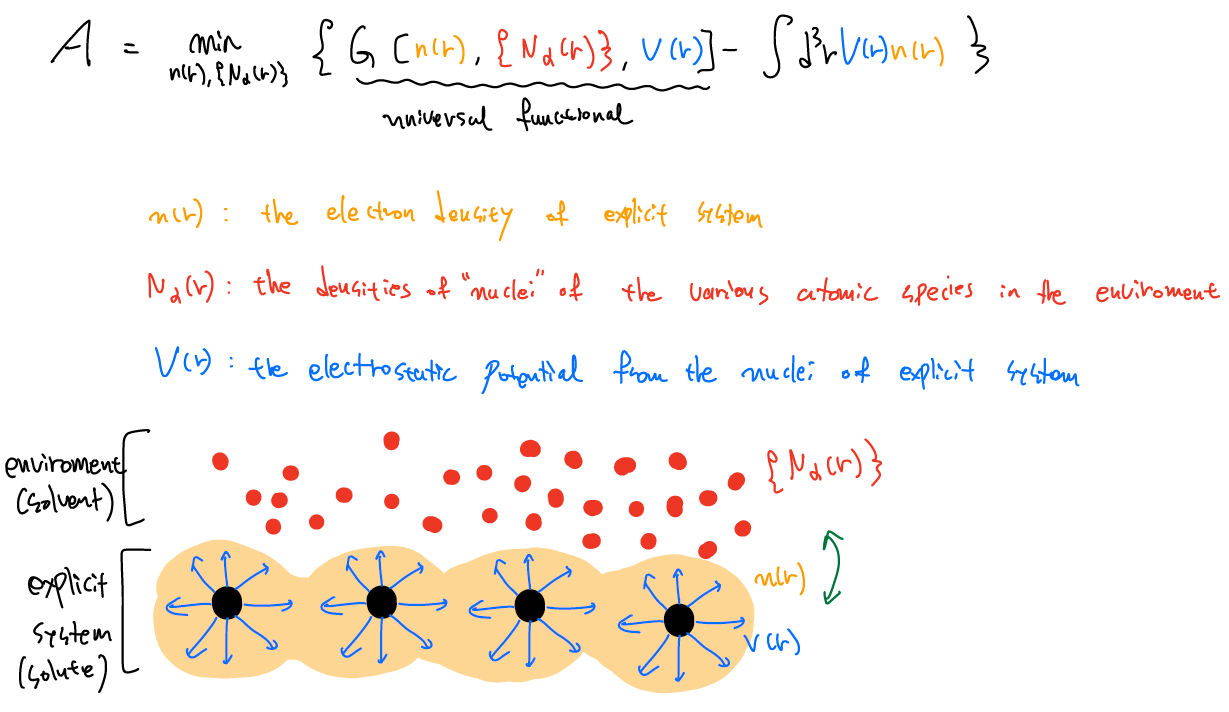 A = min { G [n(r), {N_α(r)}, V(r)] - ∫d³r V(r)n(r) }
n(r), {N_α(r)}
universal functional
n(r) : the electron density of explicit system
N_α(r) : the densities of "nuclei" of the various atomic species in the enviroment
V(r) : the electrostatic potential from the nuclei of explicit system
enviroment
(solvent)
{N_α(r)}
explicit
system
(solute)
n(r)
V(r)